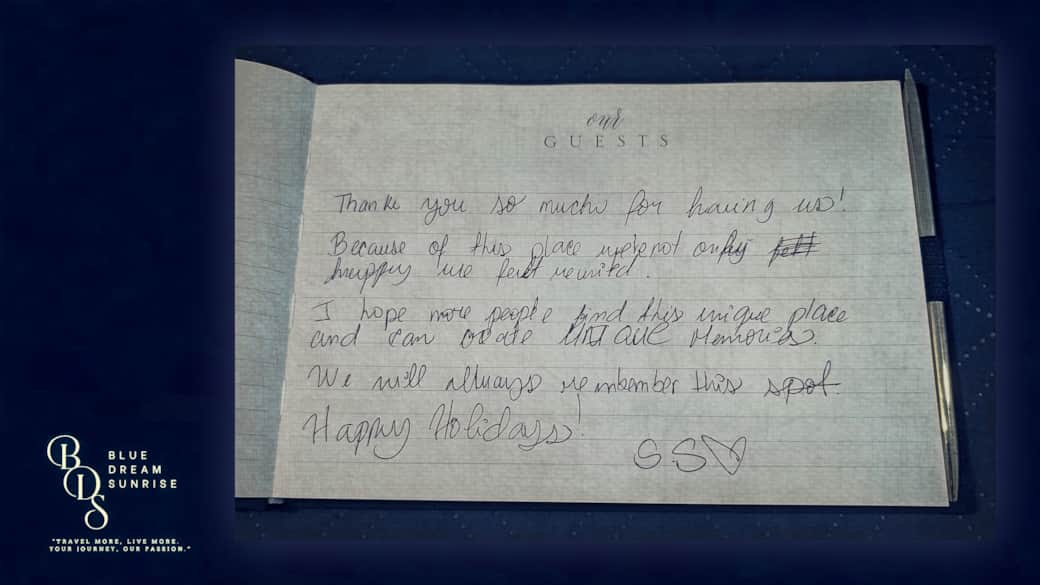 our
GUESTS
Thank you so much for having us!
Because of this place we're not only
happy we felt reunited.
I hope more people find this unique place
and can create UNIQUE Memories.
We will always remember this spot.
Happy Holidays!
S.S
BDS
BLUE
DREAM
SUNRISE
"TRAVEL MORE, LIVE MORE.
YOUR JOURNEY, OUR PASSION."